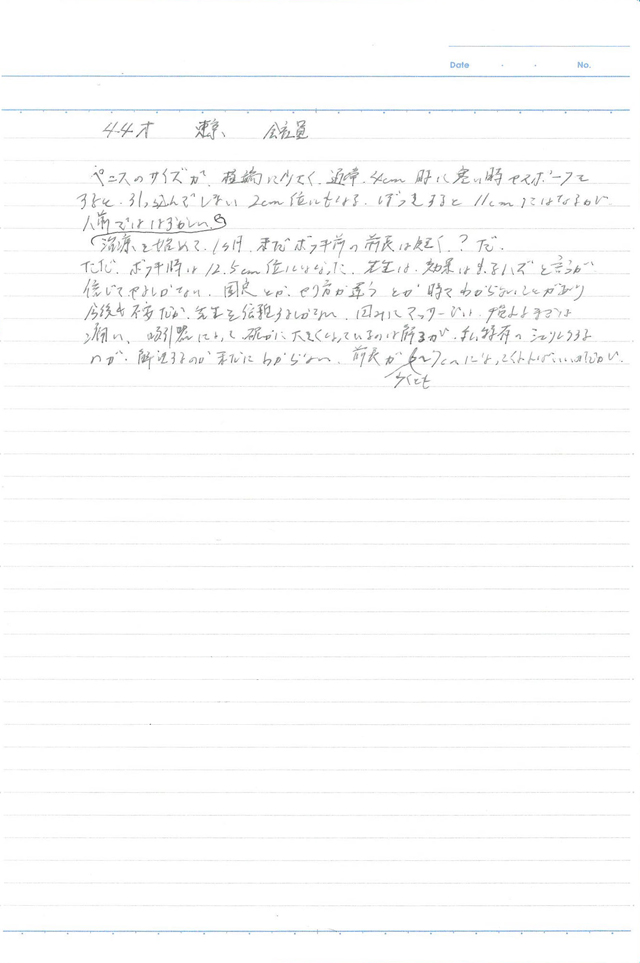 Date ・ ・ No.
44才 東京 会社員
ペニスのサイズが、極端に少なく、通常、4cm 時に寒い時やスポーツを
すると、引っ込んでしまい 2cm位にもなる、ぼっきすると 11cmにはなるが
人前でははずかしい。
治療を始めて、1ヶ月、まだボッキ前の前長は短く、?だ、
ただ、ボッキ時は 12.5cm位になった、先生は、効果は出るハズと言うが
信じてやるしかない、固定とか、やり方が違うとか時々わからないことがあり
今後も不安だが、先生を信頼するしかない、因みにマッサージは、
痛い、吸引器によって確かに大きくなっているのは解るが、私特有の
のが、解決するのかまだわからない、前長が 7cmになってくれればいいのだが、
少くとも